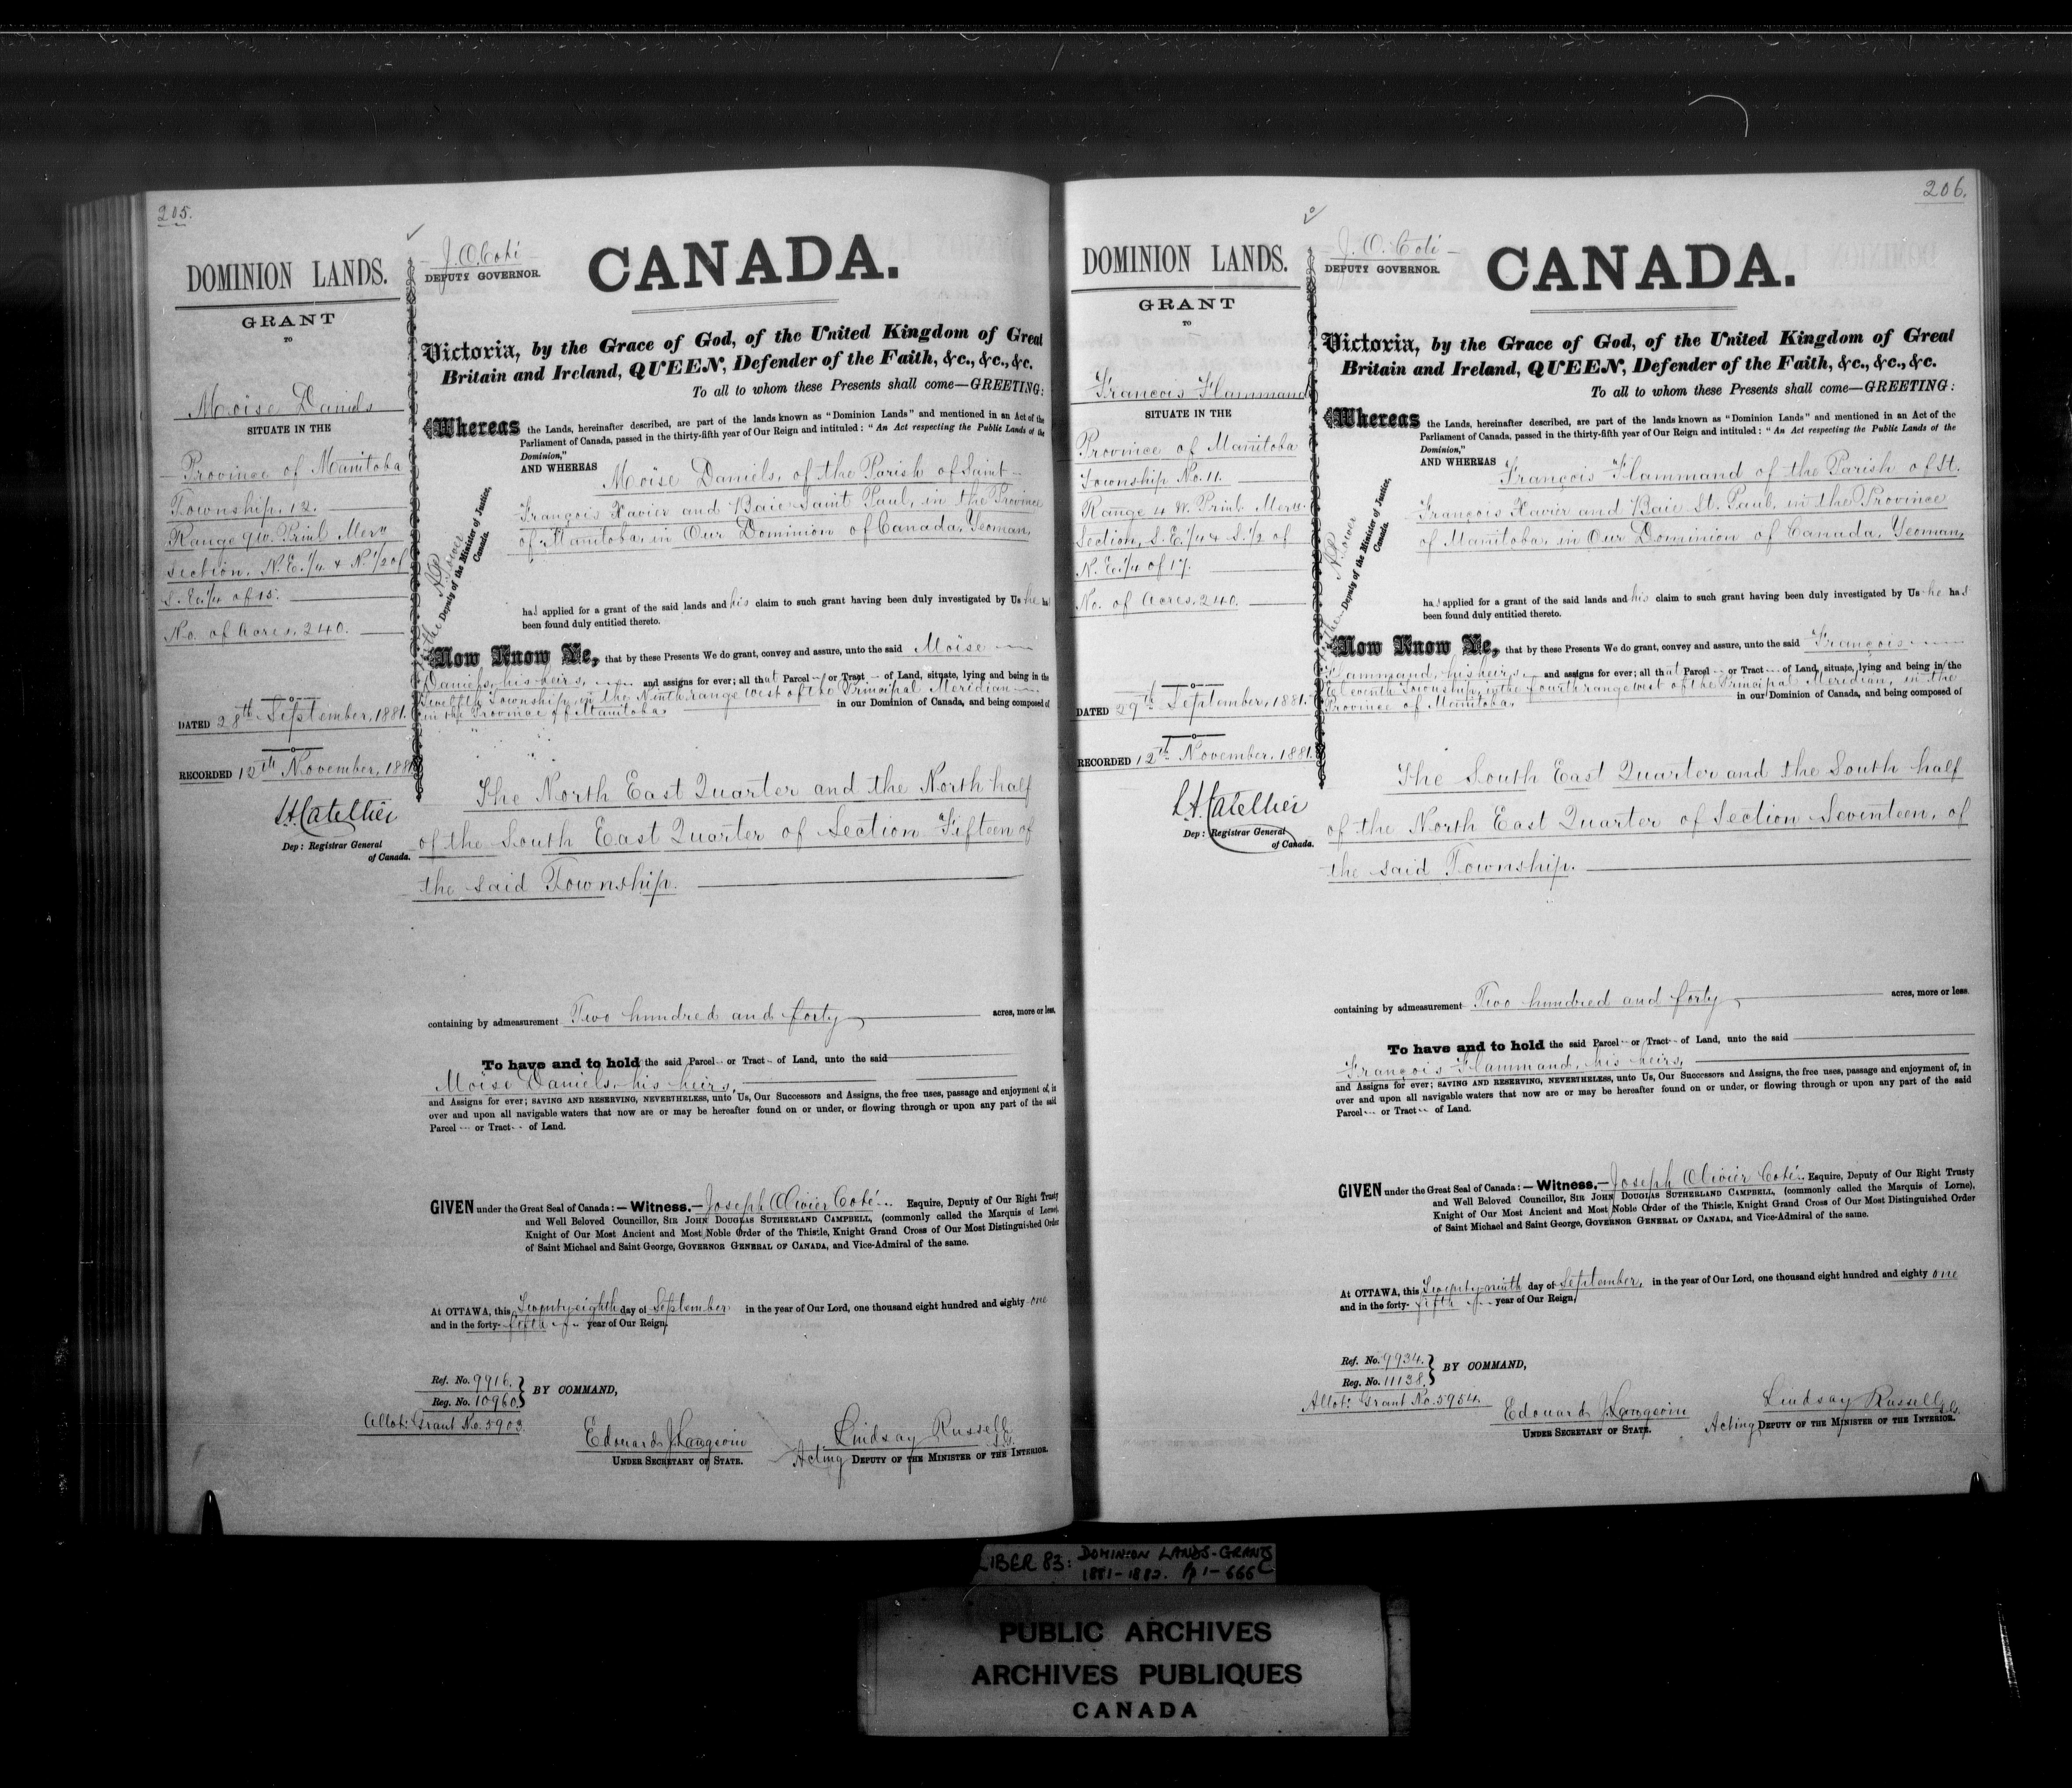 205.
DOMINION LANDS.
GRANT
TO
Moïse Daniels
SITUATE IN THE
Province of Manitoba
Township. 12.
Range 9 W. Prinl Mern
Section, N.E. 1/4 & N. 1/2 of
S. E. 1/4 of 15.
No. of Acres, 240.
DATED 28th September, 1881.
RECORDED 12th November, 1881
L.A. Catellier
Dep: Registrar General
of Canada.
J. O. Coté
DEPUTY GOVERNOR.
CANADA.
Victoria, by the Grace of God, of the United Kingdom of Great
Britain and Ireland, QUEEN, Defender of the Faith, &c., &c., &c.
To all to whom these Presents shall come—GREETING:
Whereas the Lands, hereinafter described, are part of the lands known as "Dominion Lands" and mentioned in an Act of the
Parliament of Canada, passed in the thirty-fifth year of Our Reign and intituled: "An Act respecting the Public Lands of the
Dominion,"
AND WHEREAS Moïse Daniels, of the Parish of Saint
François Xavier and Baie Saint Paul, in the Province
of Manitoba, in Our Dominion of Canada, Yeoman,
Deputy of the Minister of Justice,
Canada.
has applied for a grant of the said lands and his claim to such grant having been duly investigated by Us he has
been found duly entitled thereto.
Now Know Ye, that by these Presents We do grant, convey and assure, unto the said Moïse
Daniels, his heirs, and assigns for ever; all that Parcel or Tract of Land, situate, lying and being in the
Twelfth Township, in the Ninth range west of the Principal Meridian
in the Province of Manitoba. in our Dominion of Canada, and being composed of
The North East Quarter and the North half
of the South East Quarter of Section Fifteen of
the said Township.
containing by admeasurement Two hundred and forty acres, more or less.
To have and to hold the said Parcel or Tract of Land, unto the said
Moïse Daniels, his heirs,
and Assigns for ever; SAVING AND RESERVING, NEVERTHELESS, unto Us, Our Successors and Assigns, the free uses, passage and enjoyment of, in
over and upon all navigable waters that now are or may be hereafter found on or under, or flowing through or upon any part of the said
Parcel or Tract of Land.
GIVEN under the Great Seal of Canada:—Witness,—Joseph Olivier Coté Esquire, Deputy of Our Right Trusty
and Well Beloved Councillor, SIR JOHN DOUGLAS SUTHERLAND CAMPBELL, (commonly called the Marquis of Lorne),
Knight of Our Most Ancient and Most Noble Order of the Thistle, Knight Grand Cross of Our Most Distinguished Order
of Saint Michael and Saint George, GOVERNOR GENERAL OF CANADA, and Vice-Admiral of the same.
At OTTAWA, this Twenty-eighth day of September in the year of Our Lord, one thousand eight hundred and eighty-one
and in the forty-fifth year of Our Reign.
Ref. No. 9916.
Reg. No. 10960. } BY COMMAND,
Allot: Grant No. 5903
Edouard J. Langevin
UNDER SECRETARY OF STATE.
Lindsay Russell
Acting DEPUTY OF THE MINISTER OF THE INTERIOR.
206.
DOMINION LANDS.
GRANT
TO
François Flammand
SITUATE IN THE
Province of Manitoba
Township No. 11.
Range 4 W. Prinl Mern
Section, S. E. 1/4 & S. 1/2 of
N. E. 1/4 of 17.
No. of Acres, 240.
DATED 29th September, 1881.
RECORDED 12th November, 1881.
L.A. Catellier
Dep: Registrar General
of Canada.
J. O. Coté
DEPUTY GOVERNOR.
CANADA.
Victoria, by the Grace of God, of the United Kingdom of Great
Britain and Ireland, QUEEN, Defender of the Faith, &c., &c., &c.
To all to whom these Presents shall come—GREETING:
Whereas the Lands, hereinafter described, are part of the lands known as "Dominion Lands" and mentioned in an Act of the
Parliament of Canada, passed in the thirty-fifth year of Our Reign and intituled: "An Act respecting the Public Lands of the
Dominion,"
AND WHEREAS François Flammand of the Parish of St.
François Xavier and Baie St. Paul, in the Province
of Manitoba, in Our Dominion of Canada, Yeoman,
Deputy of the Minister of Justice,
Canada.
has applied for a grant of the said lands and his claim to such grant having been duly investigated by Us he has
been found duly entitled thereto.
Now Know Ye, that by these Presents We do grant, convey and assure, unto the said François
Flammand, his heirs, and assigns for ever; all that Parcel or Tract of Land, situate, lying and being in the
Eleventh Township, in the fourth range west of the Principal Meridian, in the
Province of Manitoba. in our Dominion of Canada, and being composed of
The South East Quarter and the South half
of the North East Quarter of Section Seventeen, of
the said Township.
containing by admeasurement Two hundred and forty acres, more or less.
To have and to hold the said Parcel or Tract of Land, unto the said
François Flammand, his heirs,
and Assigns for ever; SAVING AND RESERVING, NEVERTHELESS, unto Us, Our Successors and Assigns, the free uses, passage and enjoyment of, in
over and upon all navigable waters that now are or may be hereafter found on or under, or flowing through or upon any part of the said
Parcel or Tract of Land.
GIVEN under the Great Seal of Canada:—Witness,—Joseph Olivier Coté Esquire, Deputy of Our Right Trusty
and Well Beloved Councillor, SIR JOHN DOUGLAS SUTHERLAND CAMPBELL, (commonly called the Marquis of Lorne),
Knight of Our Most Ancient and Most Noble Order of the Thistle, Knight Grand Cross of Our Most Distinguished Order
of Saint Michael and Saint George, GOVERNOR GENERAL OF CANADA, and Vice-Admiral of the same.
At OTTAWA, this Twenty-ninth day of September, in the year of Our Lord, one thousand eight hundred and eighty one
and in the forty-fifth year of Our Reign,
Ref. No. 9934.
Reg. No. 11138. } BY COMMAND,
Allot: Grant No. 5954.
Edouard J. Langevin
UNDER SECRETARY OF STATE.
Lindsay Russell
Acting DEPUTY OF THE MINISTER OF THE INTERIOR.
LIBER 83: DOMINION LANDS-GRANTS
1881-1882. Pp 1-666
PUBLIC ARCHIVES
ARCHIVES PUBLIQUES
CANADA